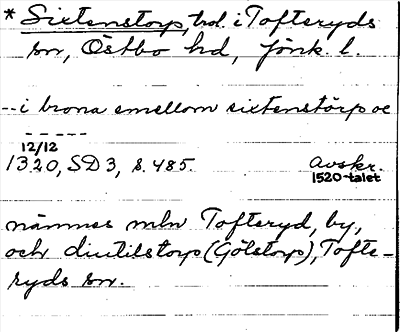 * Sixtenstorp, trol. i Tofteryds
sn, Östbo hd, Jönk. l.
-- i brona emellom sixtenstörp oc
-----
12/12
1320, SD 3, s. 485. Avskr.
1520-talet
nämnes mln Tofteryd, by,
och diutilstorp (Götstorp), Tofte-
ryds sn.